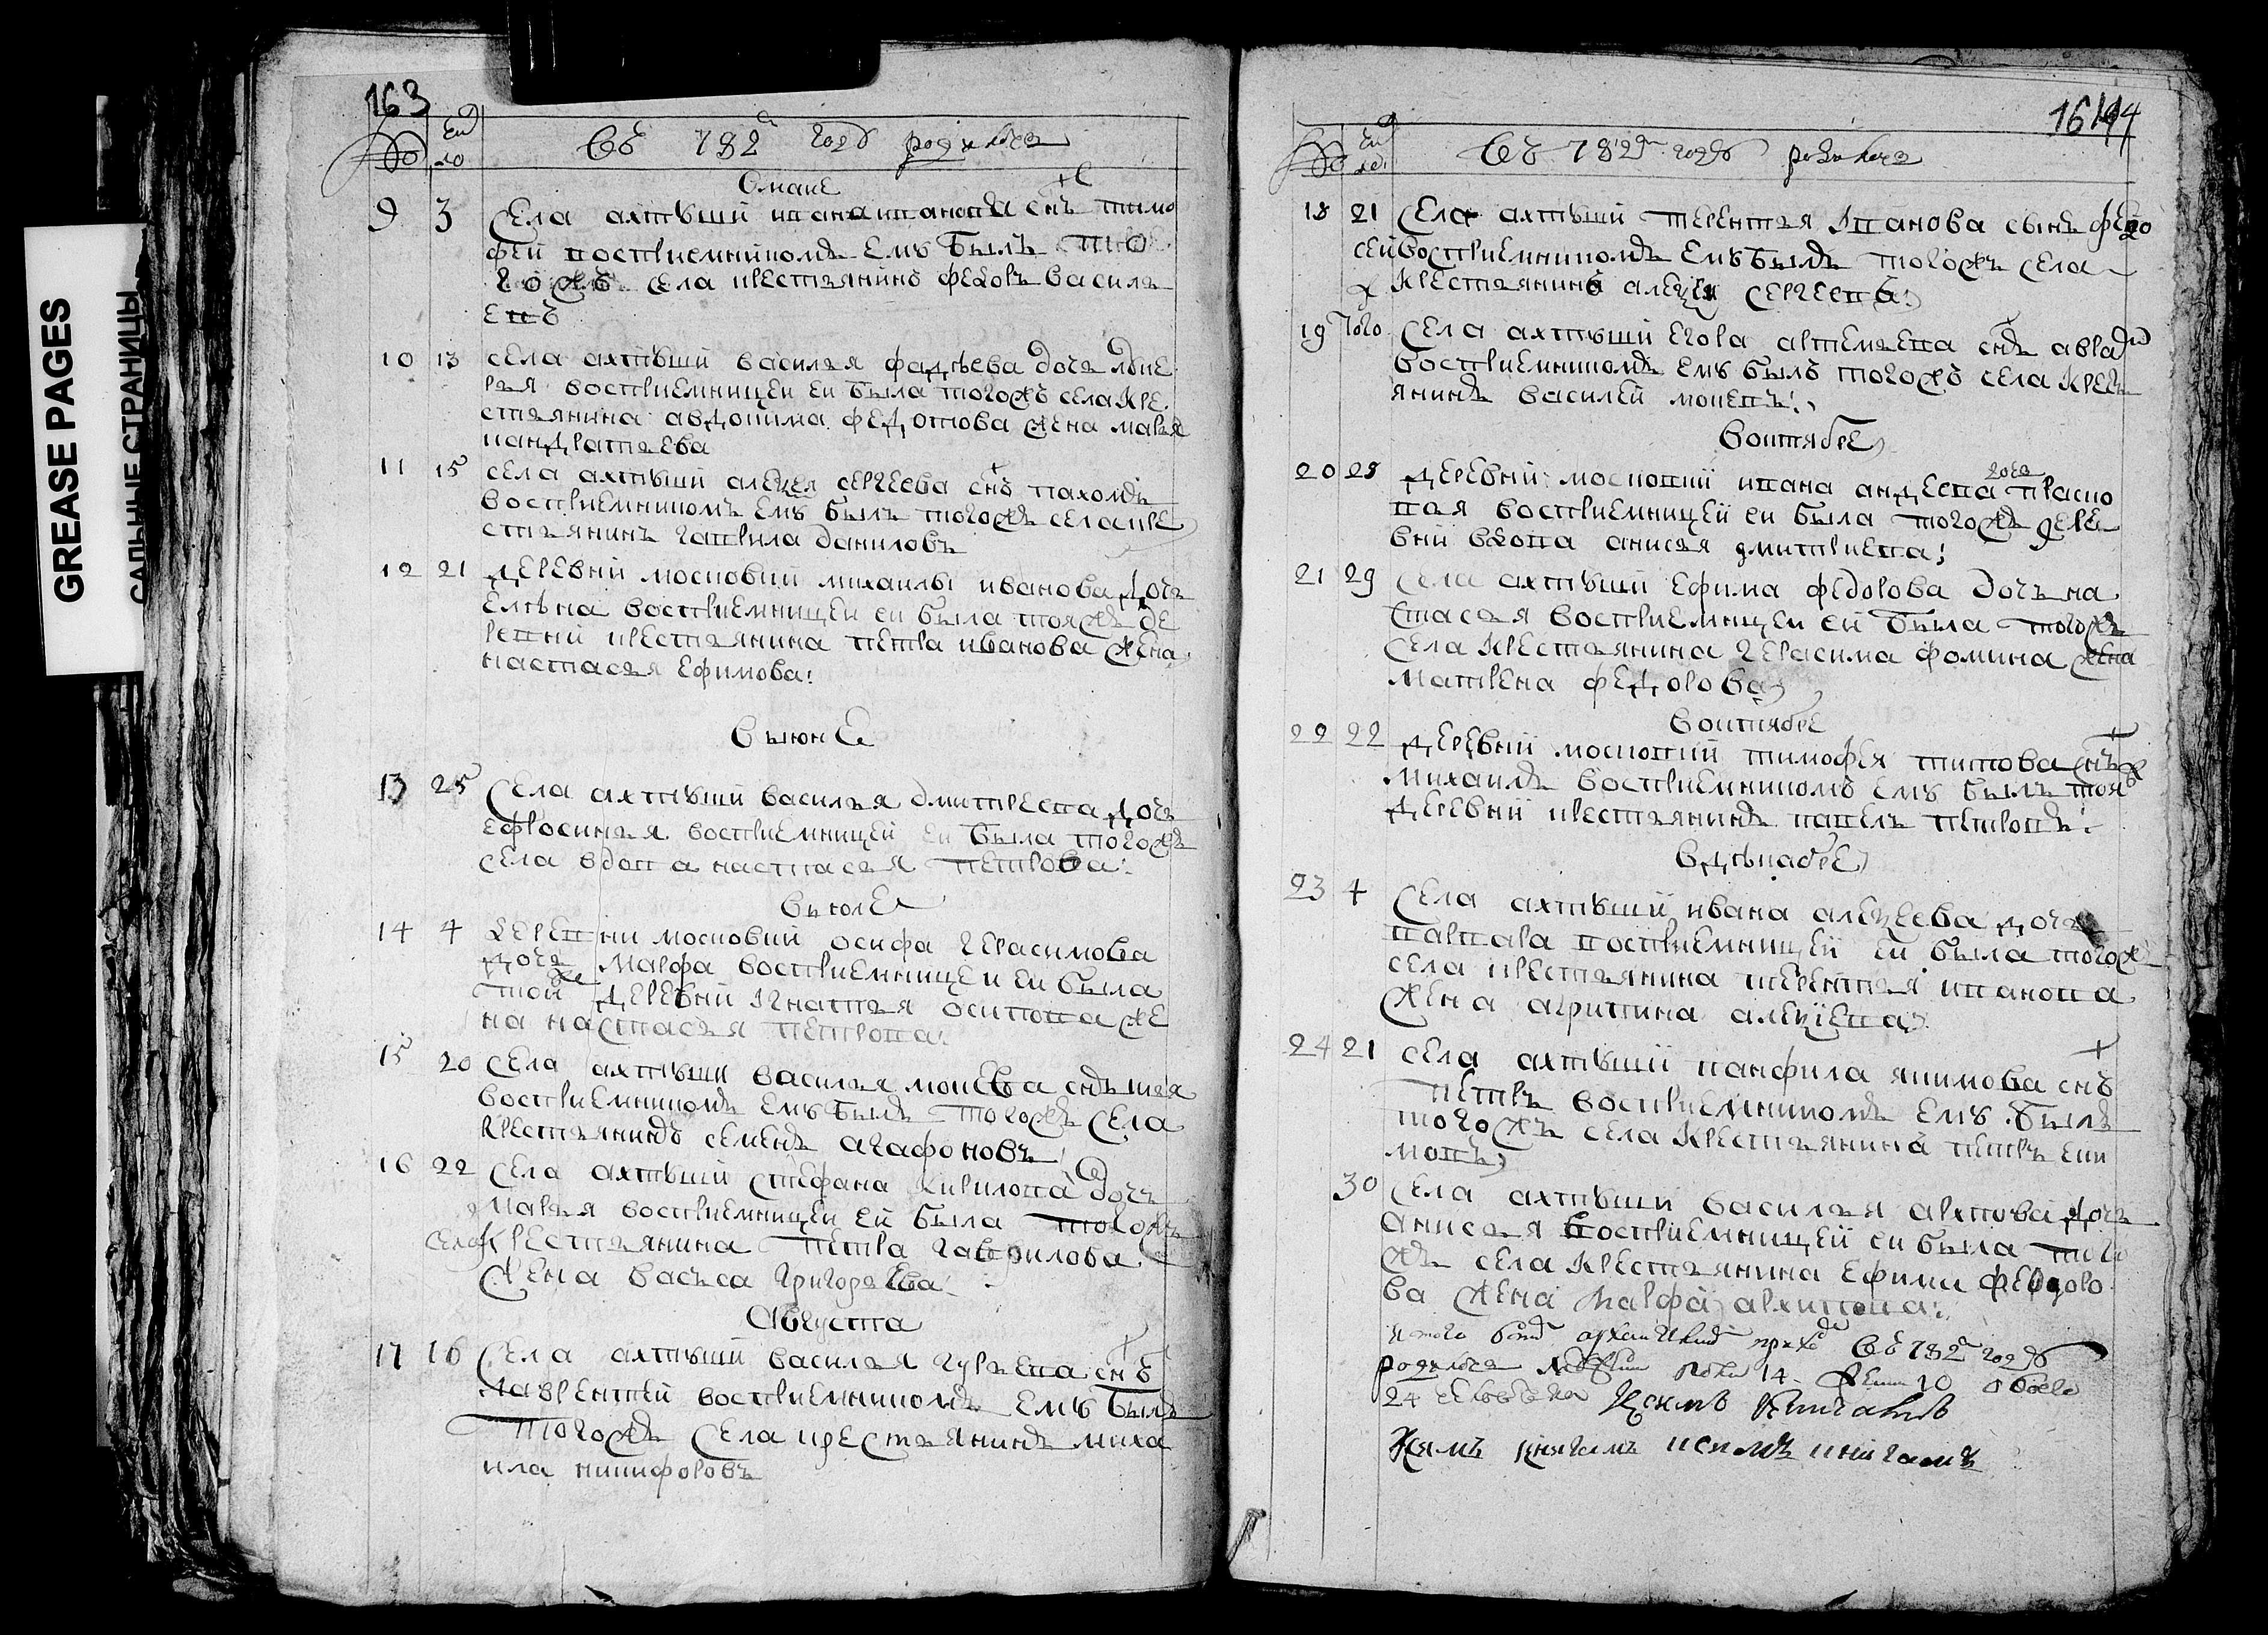 GREASE PAGES
САЛЬНЫЕ СТРАНИЦЫ
163
Въ 782м году родилося
В маие
9 3 Села ахтѣыши ивана иванова снъ тимо
фей восприемником емѣ былъ того
гожъ села крестьянинъ федоръ василь
евъ
10 13 села ахтѣыши василья фадѣева дочь лѣке
рья восприемницеи еи была тогожъ села кре
стьянина авдокима федотова жена марья
кандратьева
11 15 села ахтѣыши алецея сергеева снъ пахомъ
восприемникомъ емѣ былъ тогожъ села кре
стьянинъ гаврила даниловъ
12 21 деревни московки михаилы иванова дочь
елѣна восприемницеи еи была тояжъ де
ревни крестьянина петра иванова жена
настасья ефимова:
В июне
13 25 Села ахтѣыши василья дмитреева дочь
ефросинья восприемницеи еи была тогожъ
села вдова настасья петрова:
В июле
14 4 деревни московки осифа герасимова
дочь марфа восприемницеи еи была
тои же деревни игнатья осипова же
на настасья петрова:
15 20 Села ахтѣыши василья мокева снъ илья
восприемникомъ емѣ былъ тогожъ села
крестьянинъ семенъ агафоновъ
16 22 Села ахтѣыши стефана кирилова дочь
марья восприемницеи еи была тогожъ
села крестьянина петра гаврилова
жена васъса григорьева:
Августа
17 16 Села ахтѣыши василья гурьева снъ
лаврентей восприемникомъ емѣ былъ
тогожъ села крестьянинъ миха
ила никифоровъ
164
Въ 782м году родилося
18 21 Села ахтѣыши терентья иванова сынъ федо
сей восприемникомъ емѣ былъ тогожъ села
крестьянинъ алецеи сергеевъ:
19 Того Села ахтѣыши егора артемьева снъ
восприемникомъ емѣ былъ тогожъ села кресть
янинъ василей мокевъ:
В октябре
20 28 деревни московки ивана андеева дочь праско
вья восприемницеи еи была тогожъ дере
вни вдова анисья дмитриева:
21 29 Села ахтѣыши ефима федорова дочь на
стасья восприемницеи еи была тогожъ
села крестьянина герасима фомина жена
матрена федорова
В октябре
22 22 деревни московки тимофея титова снъ
михаилъ восприемникомъ емѣ былъ тоя
деревни крестьянинъ павелъ петровъ:
В дѣкабре
23 4 Села ахтѣыши ивана алецеева дочь
варвара восприемницеи еи была тогожъ
села крестьянина терентья иванова
жена агрипина алецеева
24 21 села ахтѣыши панфила якимова снъ
петръ восприемникомъ емѣ былъ
тогожъ села крестьянина петръ еки
мовъ
30 Села ахтѣыши василья дочь
анисья восприемницеи еи была того
жъ села крестьянина ефима федоро
ва жена марфа архипова:
Въ 782м году
родилося 14 женска 10 обоего
24 человека